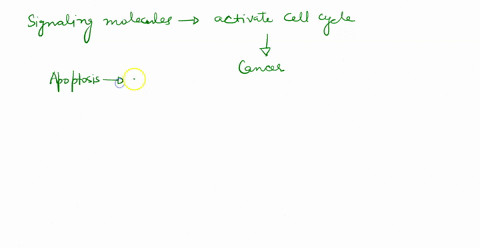 Signaling molecules → activate cell cycle
↓
Cancer
Apoptosis →